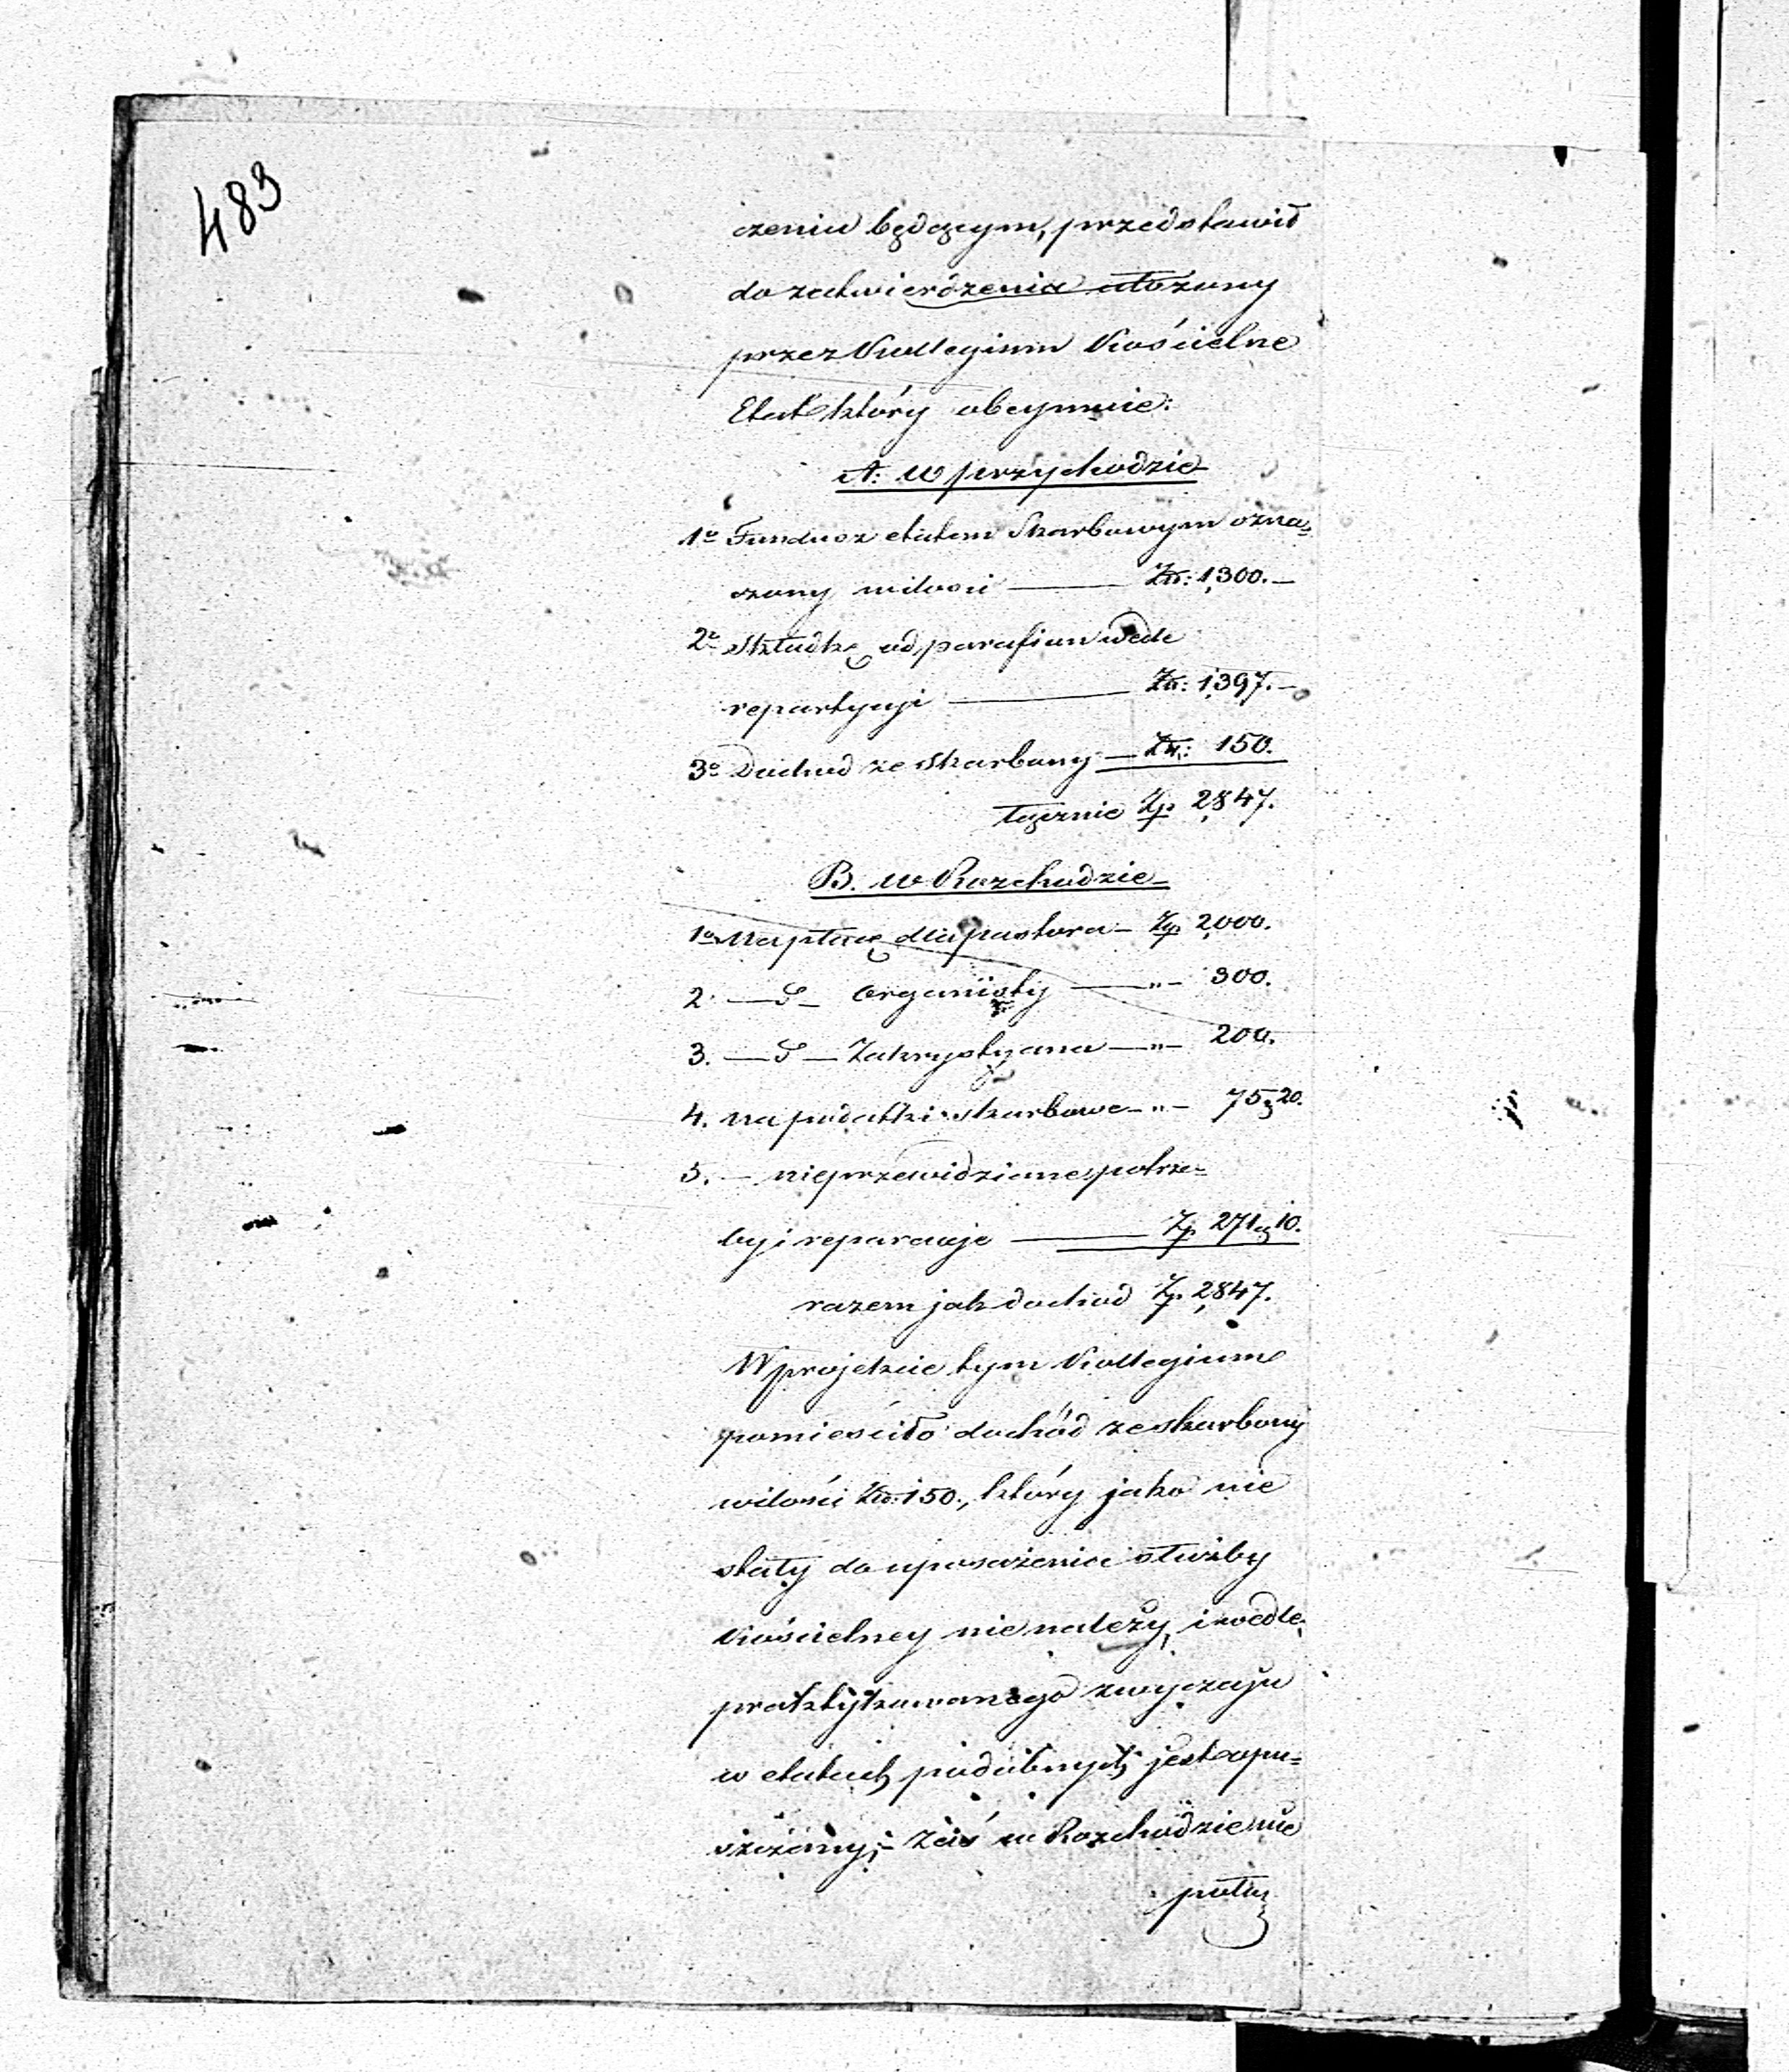 483
czeniu będącym, przedstawił
do zatwierdzenia ułożony
przez Kollegium Kościelne
Etat który obeymuie:
A: w przychodzie
1o Fundusz etatem Skarbowym ozna=
czony w ilości — Złł: 1,300.—
2o Składkę od parafian wedle
repartycyi — Złł: 1,397.—
3o Dochod ze skarbony — Złł: 150.
łącznie Zp 2,847.
B. w Rozchodzie
1o Na płacę dla pastora — Zp 2,000.
2. — d — Organisty — „ — 300.
3. — d — Zakrystyana — „ — 200.
4. Na podatki skarbowe — „ — 75 g 20.
5. — nieprzewidziane potrze=
by i reparacye — Zp 271 g 10.
razem jak dochod Zp. 2,847.
W projekcie tym Kollegium
pomieściło dochód ze skarbony
w ilości Złł: 150., który jako nie
stały do uposażenia służby
Kościelney nie należy, i wedle
praktykowanego zwyczaju
w etatach podobnych jest opu=
szczany; — Zaś w Rozchodzie nie